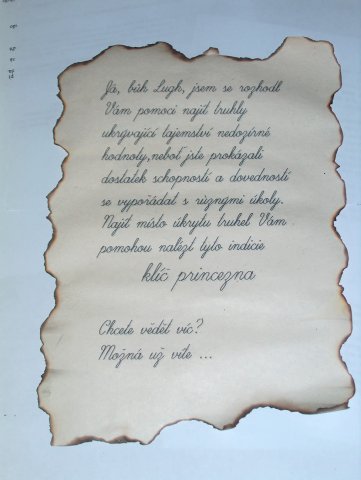 Já, bůh Lugh, jsem se rozhodl
Vám pomoci najít truhly
ukrývající tajemství nedozírné
hodnoty,neboť jste prokázali
dostatek schopností a dovedností
se vypořádat s různými úkoly.
Najít místo úkrytu truhel Vám
pomohou nalézt tyto indicie
klíč princezna
Chcete vědět víc?
Možná už víte ...